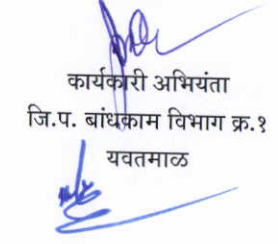 कार्यकारी अभियंता
जि.प. बांधकाम विभाग क्र.१
यवतमाळ